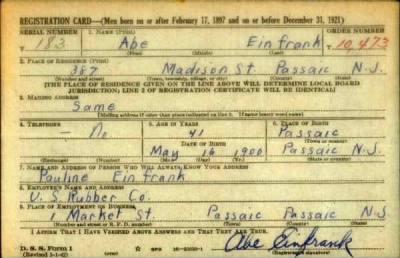 REGISTRATION CARD—(Men born on or after February 17, 1897 and on or before December 31, 1921)
SERIAL NUMBER 1. NAME (Print) ORDER NUMBER
T 183 Abe Einfrank T 10,473
(First) (Middle) (Last)
2. PLACE OF RESIDENCE (Print)
387 Madison St. Passaic N.J.
(Number and street) (Town, township, village, or city) (County) (State)
[THE PLACE OF RESIDENCE GIVEN ON THE LINE ABOVE WILL DETERMINE LOCAL BOARD
JURISDICTION; LINE 2 OF REGISTRATION CERTIFICATE WILL BE IDENTICAL]
3. MAILING ADDRESS
Same
[Mailing address if other than place indicated on line 2. If same insert word same]
4. TELEPHONE 5. AGE IN YEARS 6. PLACE OF BIRTH
— No 41 Passaic
DATE OF BIRTH (Town or county)
May 16 1900 Passaic N.J.
(Exchange) (Number) (Mo.) (Day) (Yr.) (State or country)
7. NAME AND ADDRESS OF PERSON WHO WILL ALWAYS KNOW YOUR ADDRESS
Pauline Einfrank
8. EMPLOYER'S NAME AND ADDRESS
U.S. Rubber Co.
9. PLACE OF EMPLOYMENT OR BUSINESS
1 Market St. Passaic Passaic N.J.
(Number and street or R. F. D. number) (Town) (County) (State)
I AFFIRM THAT I HAVE VERIFIED ABOVE ANSWERS AND THAT THEY ARE TRUE.
D. S. S. Form 1
(Revised 3-1-42) Abe Einfrank